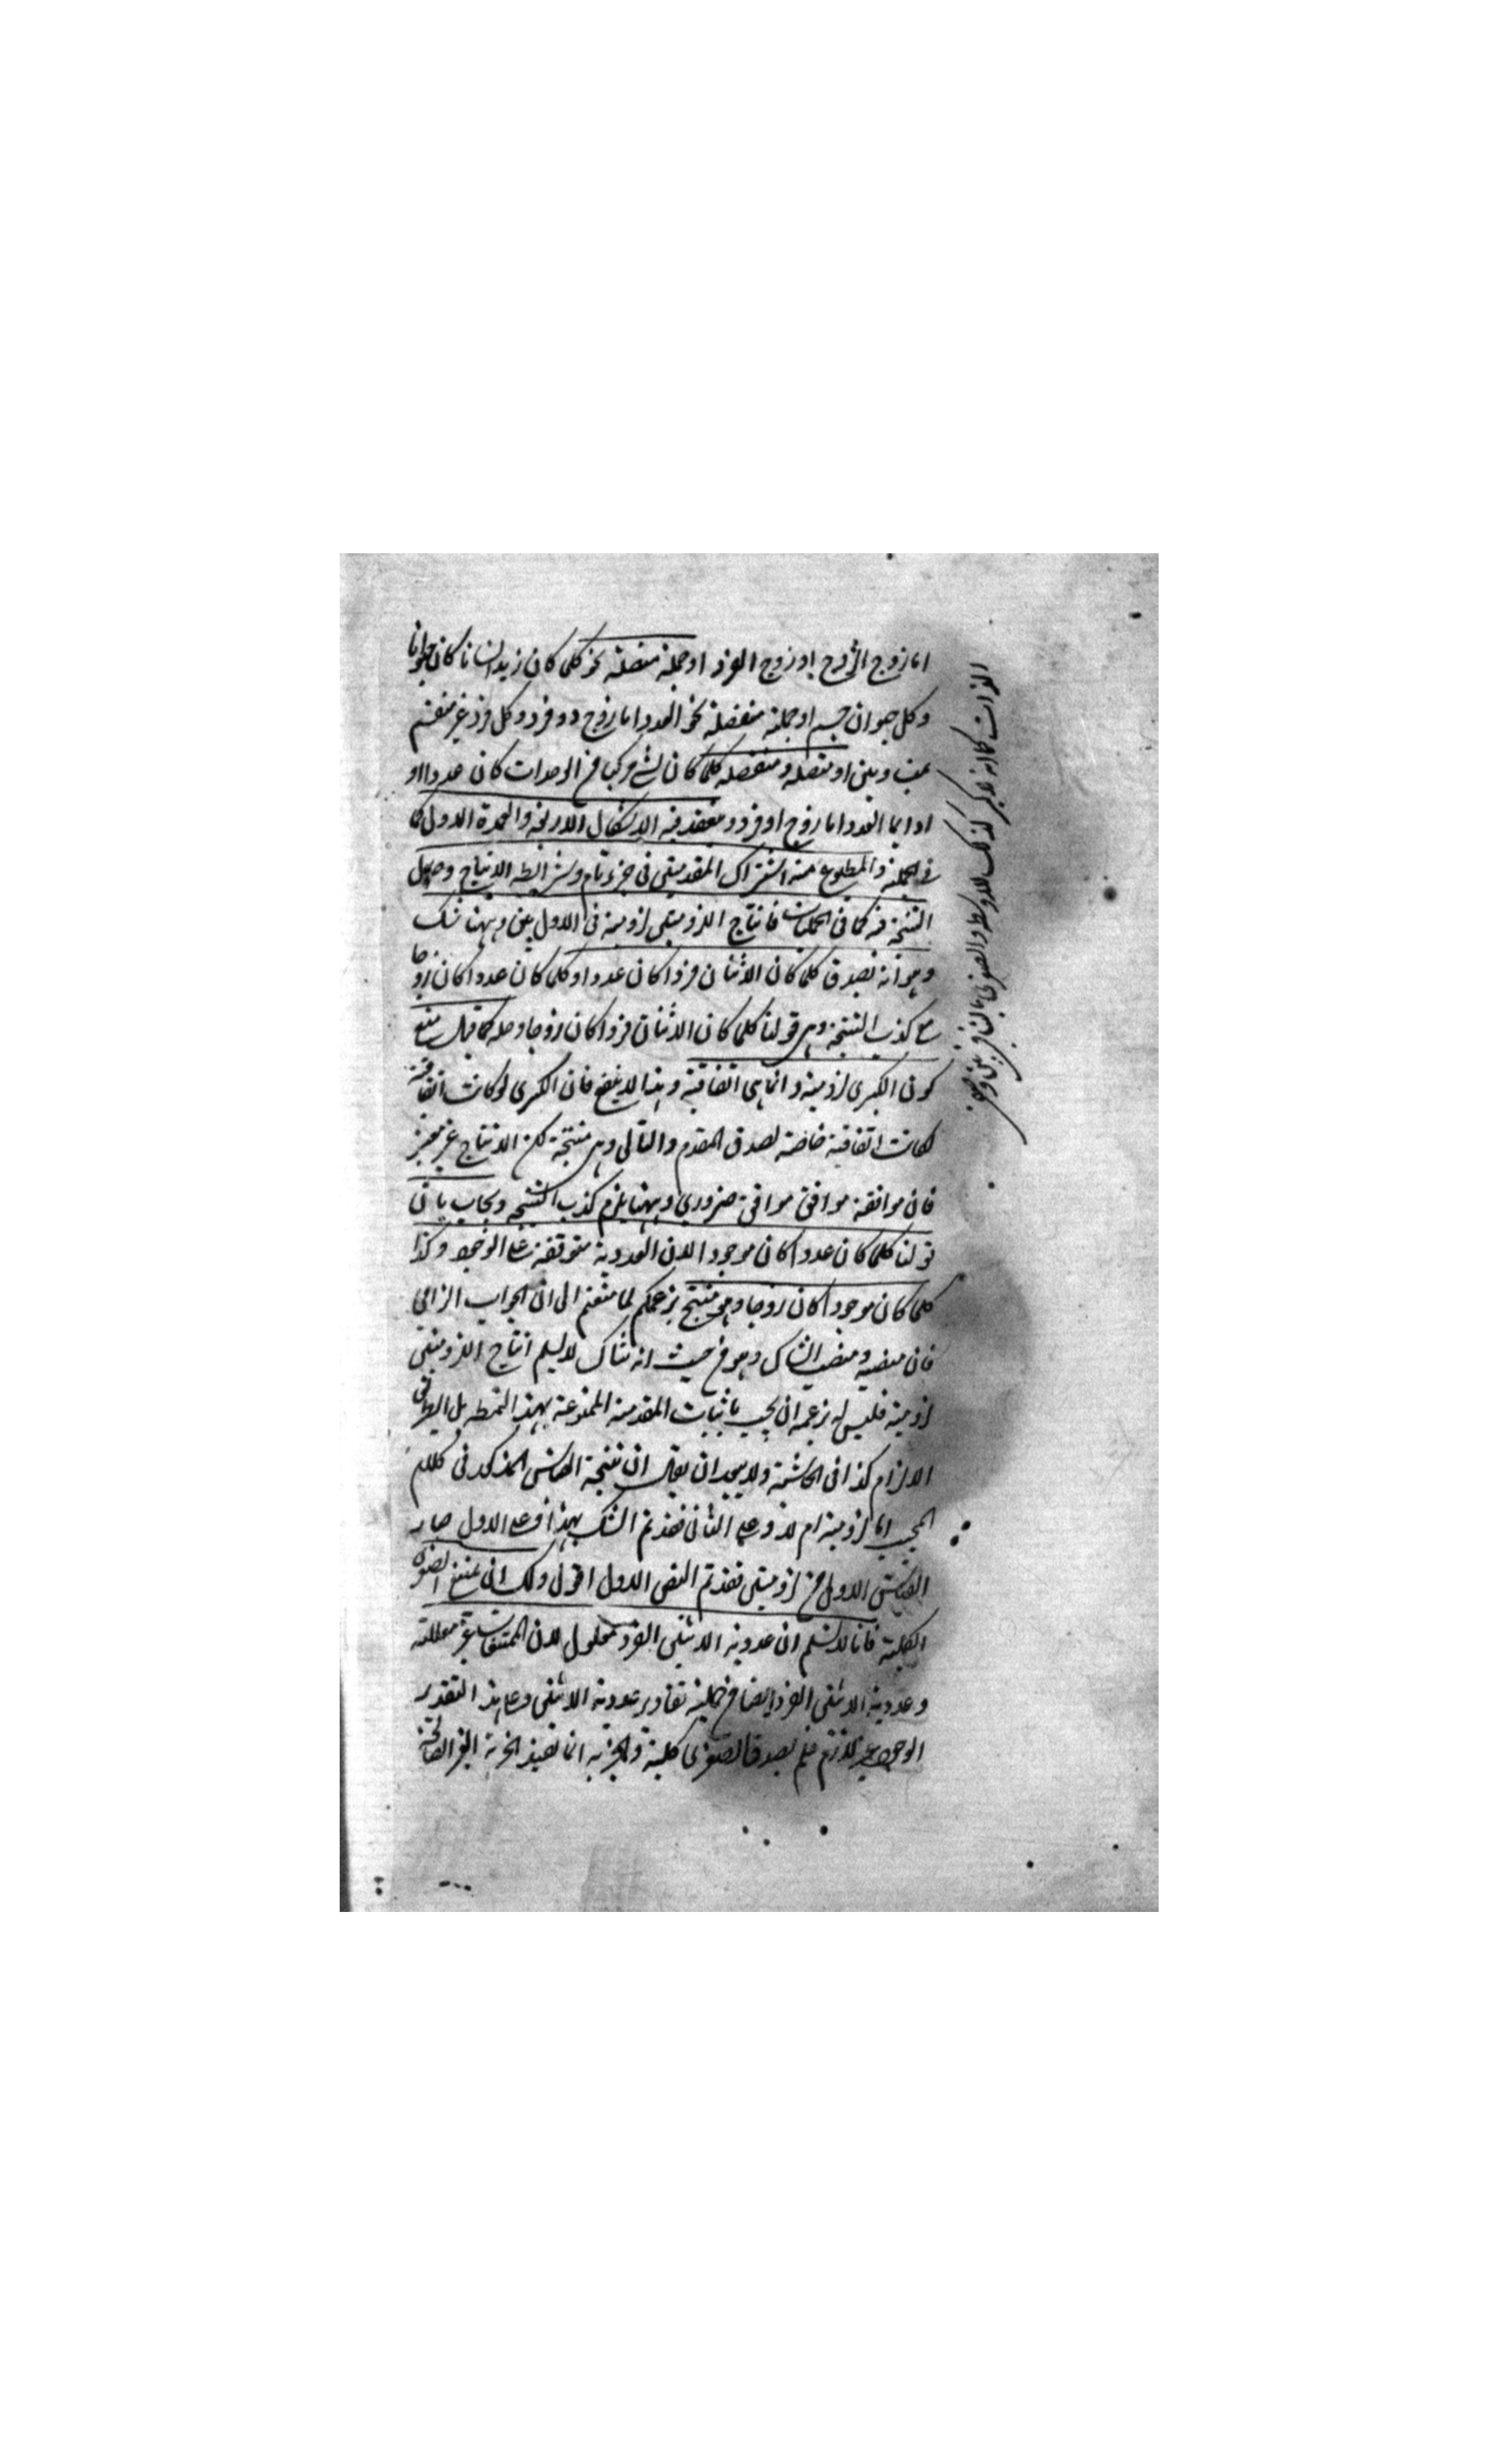 اما زوج الزوج او زوج الفرد او حملية متصلة نحو كلما كان زيد انسانا كان حيوانا
وكل حيوان جسم او حملية منفصلة نحو العدد اما زوج او فرد وكل فرد غير منقسم
بمتساويين او متصلة ومنفصلة كلما كان الشئ مركبا من الوحدات كان عددا او
اذا دائما العدد اما زوج او فرد وينعقد فيه الاشكال الاربعة والعمدة الاول كما
في الحملية والمطبوع منه اشتراك المقدمتين في جزء تام وشرائط الانتاج وحال
النتيجة فيه كما في الحمليات فانتاج اللزوميتين لزومية في الاول بين وههنا شك
وهو انه يصدق كلما كان الاثنان فردا كان عددا وكلما كان عددا كان زوجا
مع كذب النتيجة وهي قولنا كلما كان الاثنان فردا كان زوجا وحله كما قيل منع
كون الكبرى لزومية وانما هي اتفاقية وهذا لا ينفع فان الكبرى لو كانت اتفاقية
لكانت اتفاقية خاصة لصدق المقدم والتالي وهي منتجة لكن الانتاج غير معتبر
فان موافقة موافق موافق ضروري وههنا يلزم كذب النتيجة ويجاب بان
قولنا كلما كان عددا كان موجودا لان العددية متوقفة على الوجود وكذا
كلما كان موجودا كان زوجا وهو منتج بزعمكم لما منعتم الى ان الجواب الزامي
فان منصبه منصب الشاك وهو من حيث انه شاك لا يسلم انتاج اللزوميتين
لزومية فليس له بزعمه ان يجيب باثبات المقدمة الممنوعة بهذا النمط بل
الالزام كذا في الحاشية ولا يبعد ان يقال ان نتيجة القياس المذكور في كلام
المجيب اما لزومية ام لا وعلى الثاني فقد تم الشك بهذا وعلى الاول صار
القياس الاول من لزوميتين فقد تم النقض الاول اقول ولك ان تمنع الصغرى
الكلية فانا لا نسلم ان عددية الاثنين الفرد معلول لان الممتنعات غير معللة
وعددية الاثنين الفرد ايضا من جملة تقادير عددية الاثنين وعلى هذا التقدير
الوجود غير لازم فلم يصدق الصغرى كلية والجزئية انما تفيد الجزئية الغير الصالحة